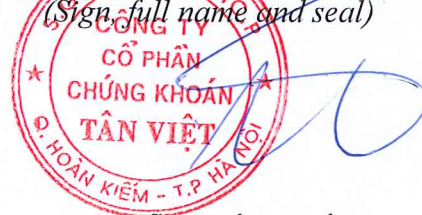 (Sign, full name and seal)
CÔNG TY
CỔ PHẦN
CHỨNG KHOÁN
TÂN VIỆT
Q. HOÀN KIẾM - T.P HÀ NỘI